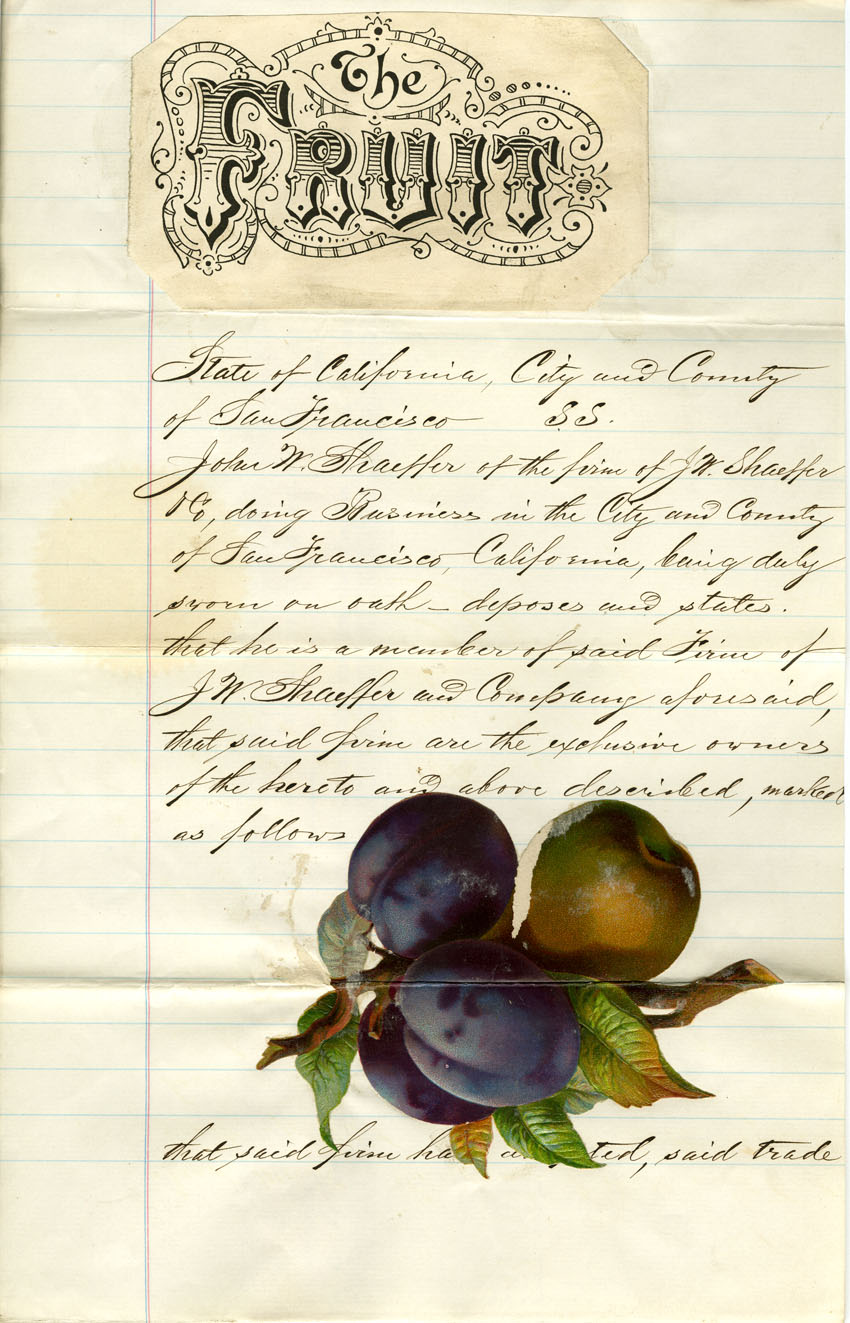 The
FRUIT
State of California, City and County
of San Francisco S.S.
John W. Shaeffer of the firm of J.W. Shaeffer
& Co, doing Business in the City and County
of San Francisco, California, being duly
sworn on oath – deposes and states.
that he is a member of said Firm of
J W. Shaeffer and Company aforesaid,
that said firm are the exclusive owners
of the hereto and above described, marked
as follows
that said firm ha ted, said trade